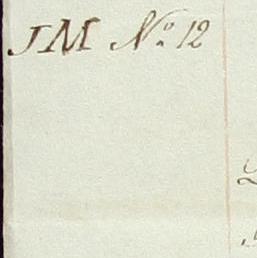 JM Nº 12